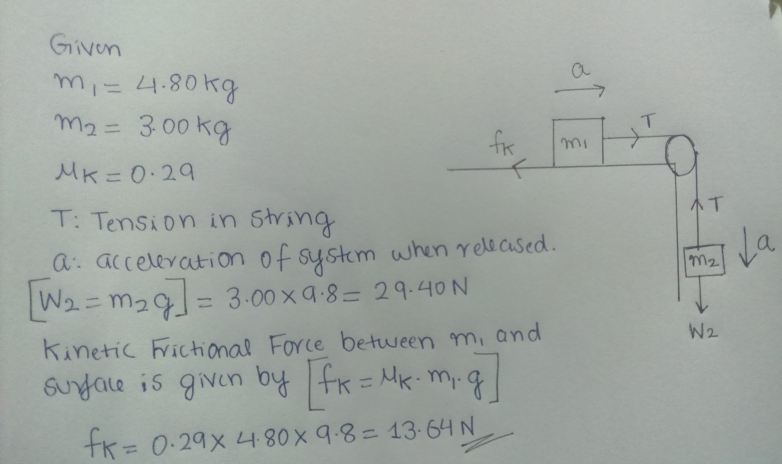 Given
m₁ = 4.80 kg
m₂ = 3.00 kg
μK = 0.29
T: Tension in string
a: acceleration of system when released.
[W₂ = m₂g] = 3.00 × 9.8 = 29.40 N
Kinetic Frictional Force between m₁ and
surface is given by [fK = μK · m₁ · g]
fK = 0.29 × 4.80 × 9.8 = 13.64 N
a
fK
m₁
T
T
m₂
a
W₂